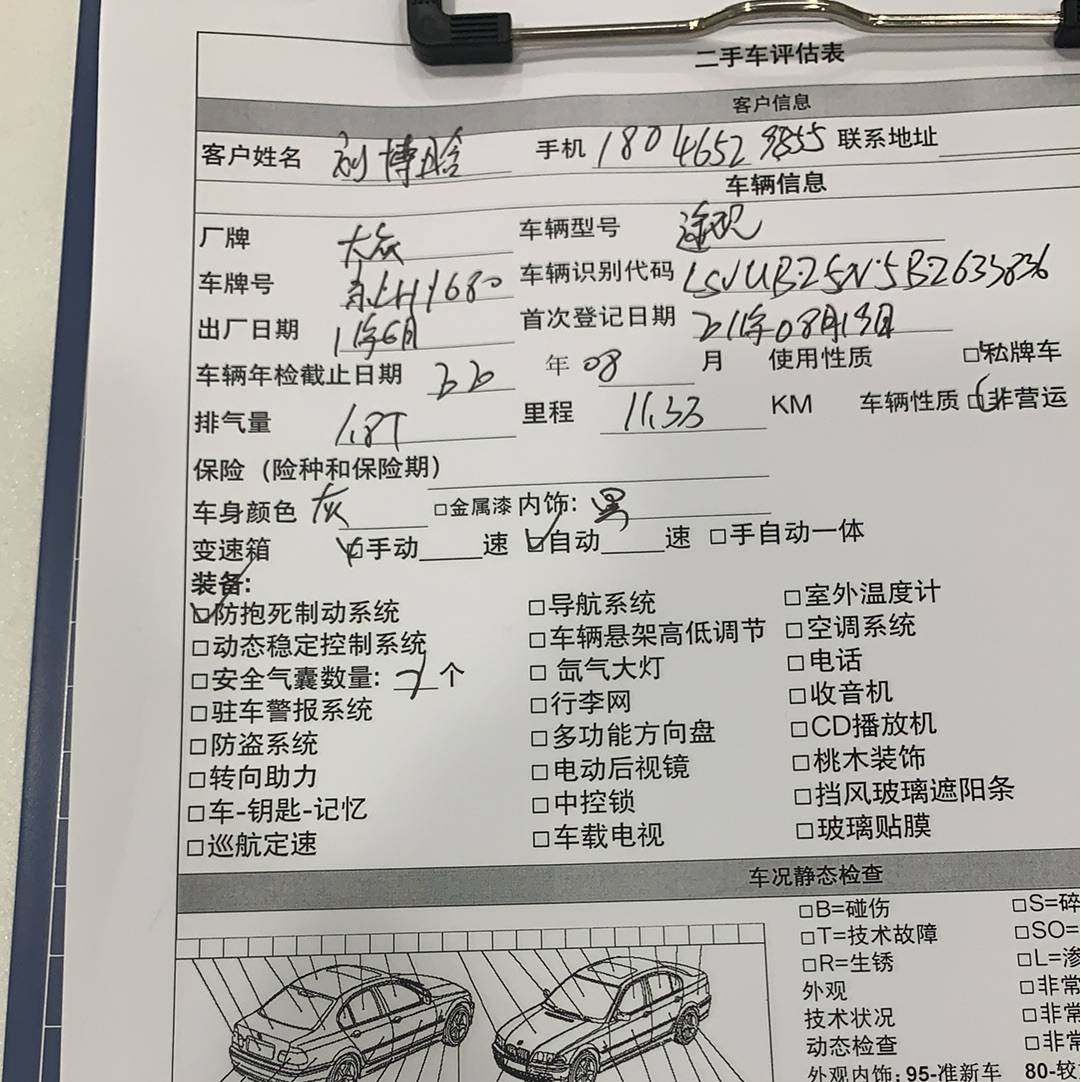 二手车评估表
客户信息
客户姓名 刘博晗 手机 18046529855 联系地址
车辆信息
厂牌 大众 车辆型号 途观
车牌号 车辆识别代码 LSVUB25N5B2635836
出厂日期 11年6月 首次登记日期 2011年08月19日
车辆年检截止日期 20 年 08 月 使用性质 □私牌车
排气量 1.8T 里程 11.33 KM 车辆性质 □非营运
保险（险种和保险期）
车身颜色 灰 □金属漆 内饰: 黑
变速箱 □手动 速 ☑自动 速 □手自动一体
装备:
☑防抱死制动系统 □导航系统 □室外温度计
□动态稳定控制系统 □车辆悬架高低调节 □空调系统
□安全气囊数量: 个 □氙气大灯 □电话
□驻车警报系统 □行李网 □收音机
□防盗系统 □多功能方向盘 □CD播放机
□转向助力 □电动后视镜 □桃木装饰
□车-钥匙-记忆 □中控锁 □挡风玻璃遮阳条
□巡航定速 □车载电视 □玻璃贴膜
车况静态检查
□B=碰伤 □S=碎
□T=技术故障 □SO=
□R=生锈 □L=渗
外观 □非常
技术状况 □非常
动态检查 □非常
外观内饰: 95-准新车 80-较